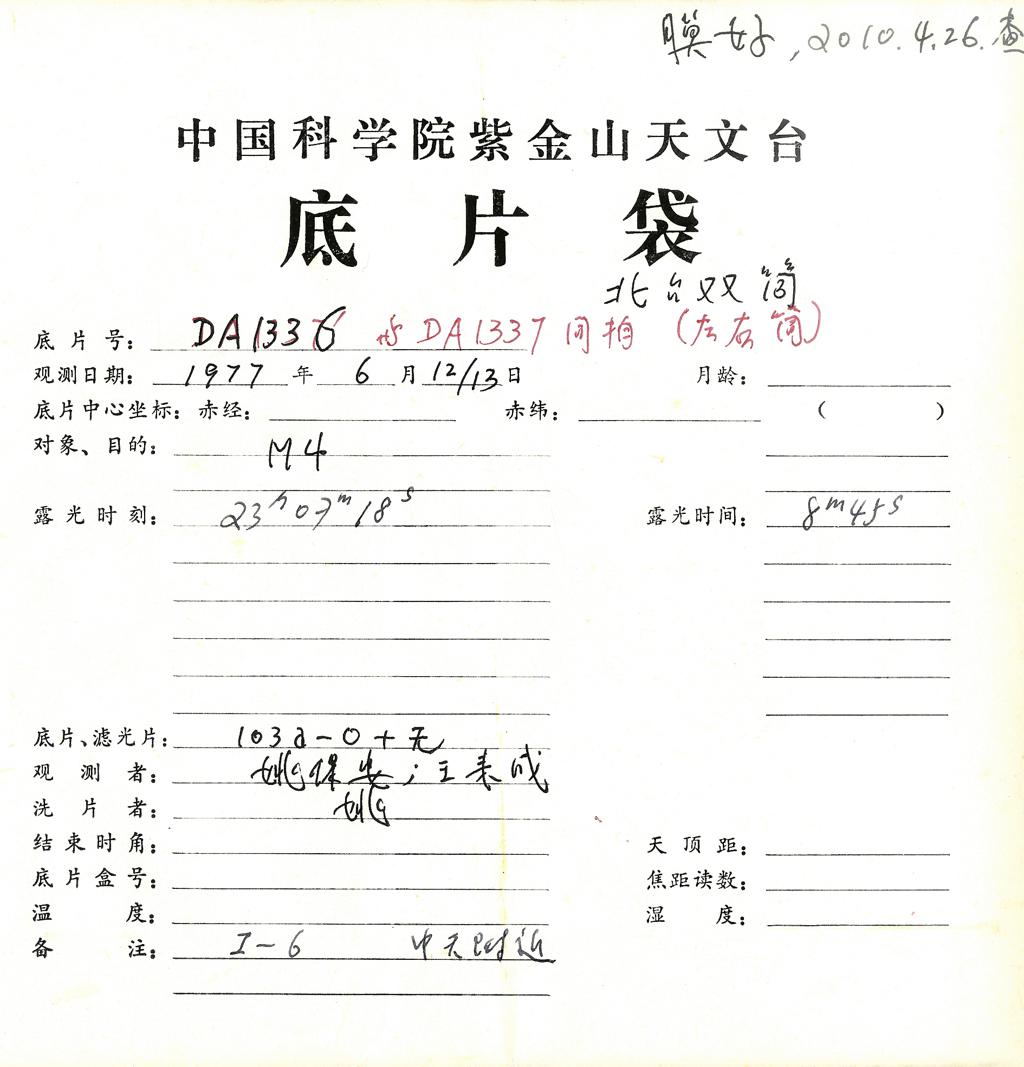 膜好,2010.4.26.查
中国科学院紫金山天文台
底片袋
北台双筒
底片号: DA1336 与DA1337同拍(左右筒)
观测日期: 1977年 6月12/13日 月龄:
底片中心坐标: 赤经: 赤纬: ( )
对象、目的: M4
露光时刻: 23h07m18s 露光时间: 8m45s
底片、滤光片: 103a-O+无
观测者: 姚保安;王来成
洗片者: 姚
结束时角: 天顶距:
底片盒号: 焦距读数:
温度: 湿度:
备注: I-6 中天附近